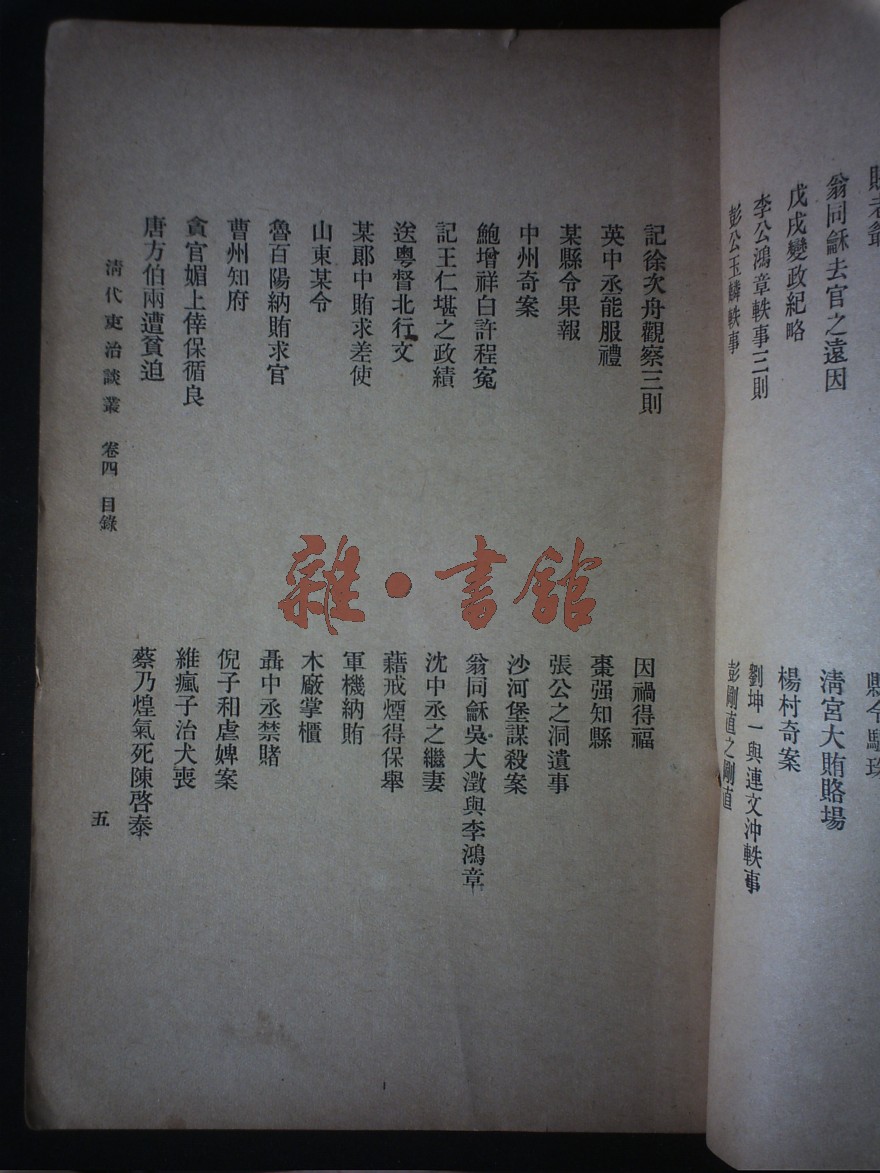 翁同龢去官之遠因
戊戌變政紀略
李公鴻章軼事三則
彭公玉麟軼事
清宮大賄賂場
楊村奇案
劉坤一與連文沖軼事
彭剛直之剛直
記徐次舟觀察三則
英中丞能服禮
某縣令果報
中州奇案
鮑增祥白許程冤
記王仁堪之政績
送粵督北行文
某郎中賄求差使
山東某令
魯百陽納賄求官
曹州知府
貪官媚上倖保循良
唐方伯兩遭貧迫
因禍得福
棗强知縣
張公之洞遺事
沙河堡謀殺案
翁同龢吳大澂與李鴻章
沈中丞之繼妻
藉戒煙得保舉
軍機納賄
木廠掌櫃
聶中丞禁賭
倪子和虐婢案
維瘋子治犬喪
蔡乃煌氣死陳啓泰
清代吏治談叢 卷四 目錄
五
雜·書館